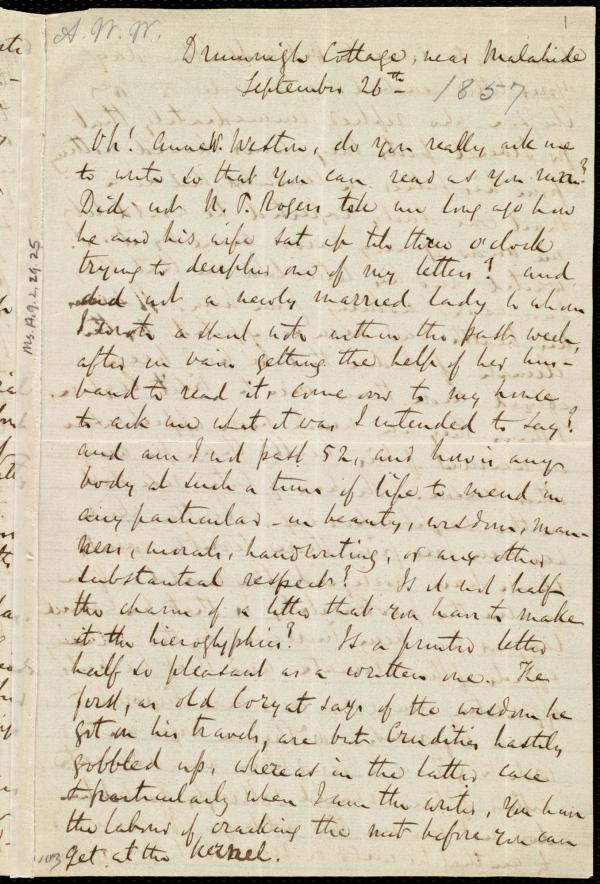 A. W. W.
1
Drumnigh Cottage, near Malahide
September 26th 1857
Oh! Anne W. Weston, do you really ask me
to write so that you can read as you run?
Did not N. P. Rogers tell me long ago how
he and his wife sat up till three o'clock
trying to decipher one of my letters? and
did not a newly married lady to whom
I wrote a short note within the past week,
after in vain getting the help of her hus-
band to read it, come over to my house
to ask me what it was I intended to say?
and am I not past 52, and how is any-
body at such a time of life to mend in
any particular - in beauty, wisdom, man-
ners, morals, handwriting, or any other
substantial respect? Is it not half
the charm of a letter that you have to make
it the hieroglyphics? Is a printed letter
half so pleasant as a written one. The
first, as old Coryat says of the wisdom he
got on his travels, are but Crudities hastily
gobbled up, whereas in the latter case
& particularly when I am the writer, you have
the labour of cracking the nut before you can
get at the kernel.
Ms. A. 9. 2. 29. 25